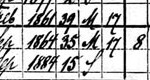 1861 39 M 17
1864 35 M 17 8
1884 15 S